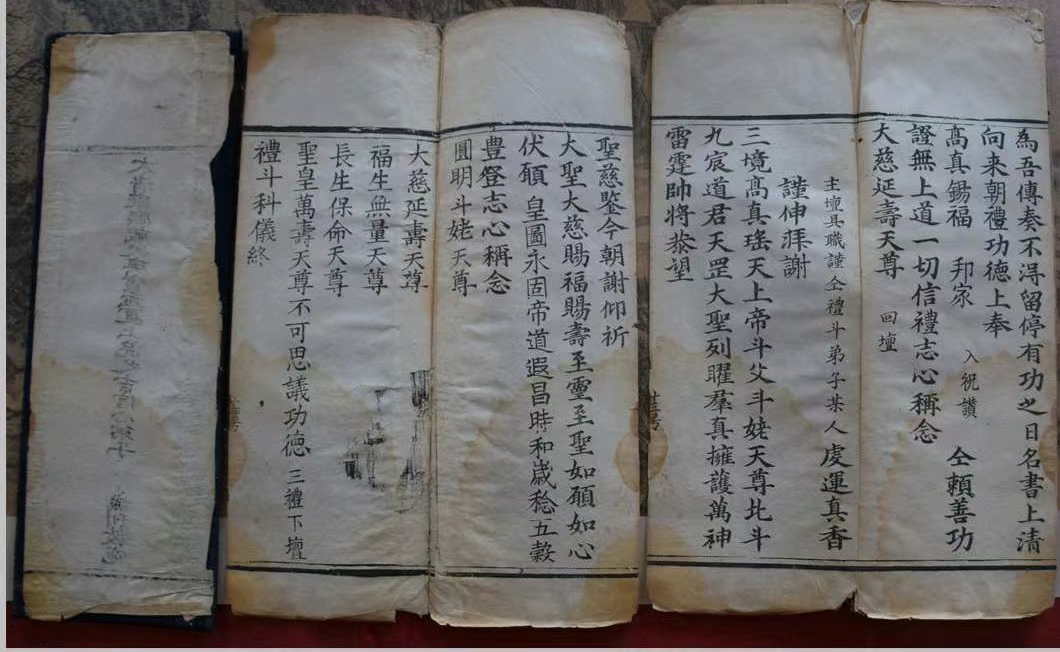 為吾傳奏不淂留停有功之日名書上清
向来朝禮功德上奉
高真錫福　邦家　入祝讚　仝頼善功
證無上道一切信禮志心稱念
大慈延壽天尊　回壇
主壇具職謹仝禮斗弟子某人虔運真香
謹伸拜謝
三境高真瑤天上帝斗父斗姥天尊北斗
九宸道君天罡大聖列曜羣真擁護萬神
雷霆帥將恭望
聖慈鑒今朝謝仰祈
大聖大慈賜福賜壽至靈至聖如願如心
伏願　皇圖永固帝道遐昌時和歲稔五穀
豊登志心稱念
圓明斗姥天尊
大慈延壽天尊
福生無量天尊
長生保命天尊
聖皇萬壽天尊不可思議功德　三禮下壇
禮斗科儀終